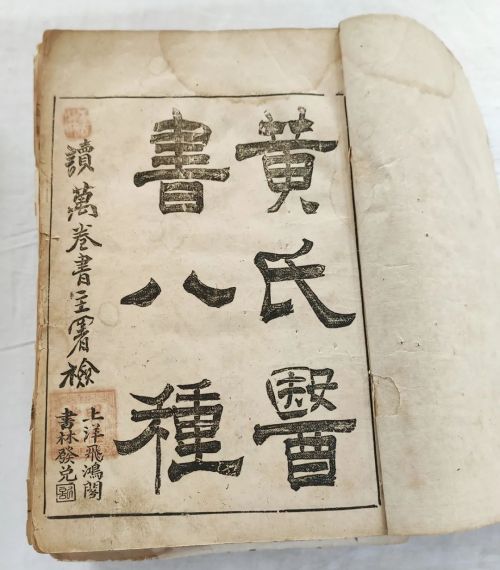 黄氏醫
書八種
讀萬卷書室署檢
上洋飛鴻閣
書林發兌